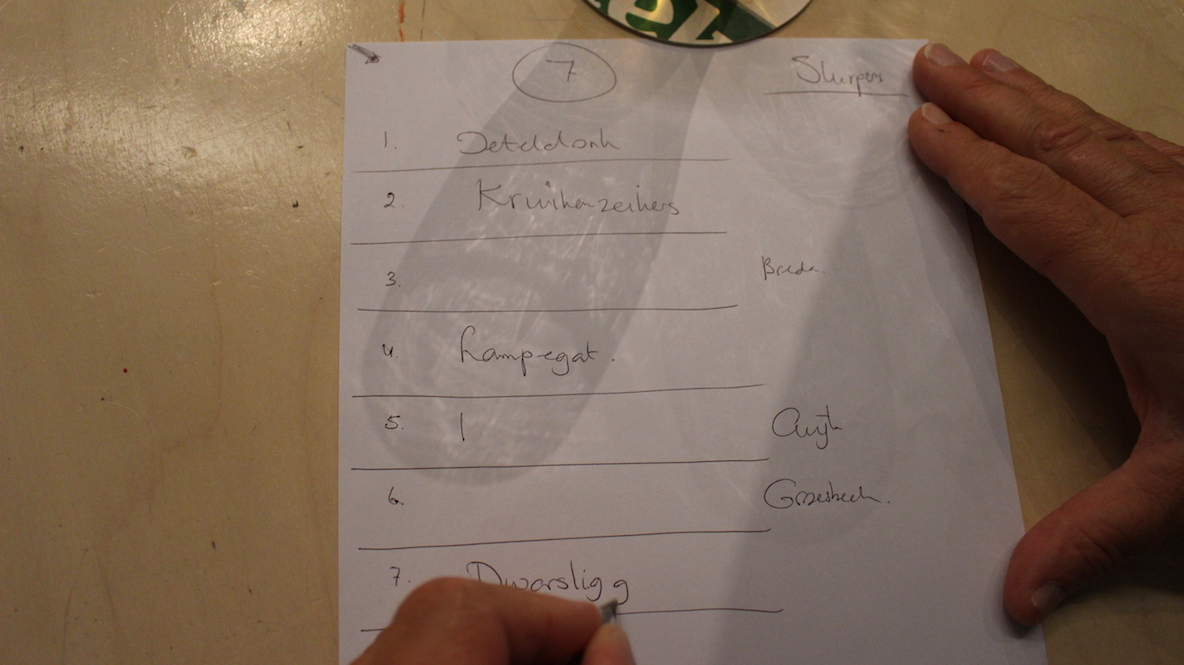 7 Slurpers
1. Oeteldonk
2. Kruikenzeikers
3. Breda.
4. Lampegat.
5. Cuijk
6. Groesbeek.
7. Dwarsligg